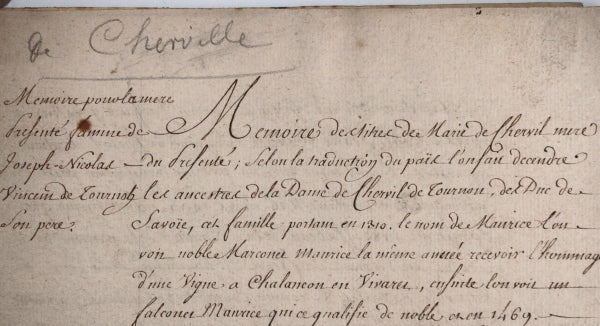 de Cherville
Memoire pour la mere
Presenté femme de
Joseph-Nicolas
Vincent de Tournoh
Son pere.
Memoire des titres de Marie de Chervil mere
du Presenté; Selon la traduction du païs l'on fau decendre
les ancestres de la Dame de Chervil de Tournon, des Duc de
Savoie, cet famille portam en 1310. le nom de Maurice l'on
voit noble Marconet Maurice la même année recevoir l'hommage
d'une Vigne a Chalancon en Vivarez, ensuite lon voit un
falconet Maurice qui ce qualifie de noble et en 1469.